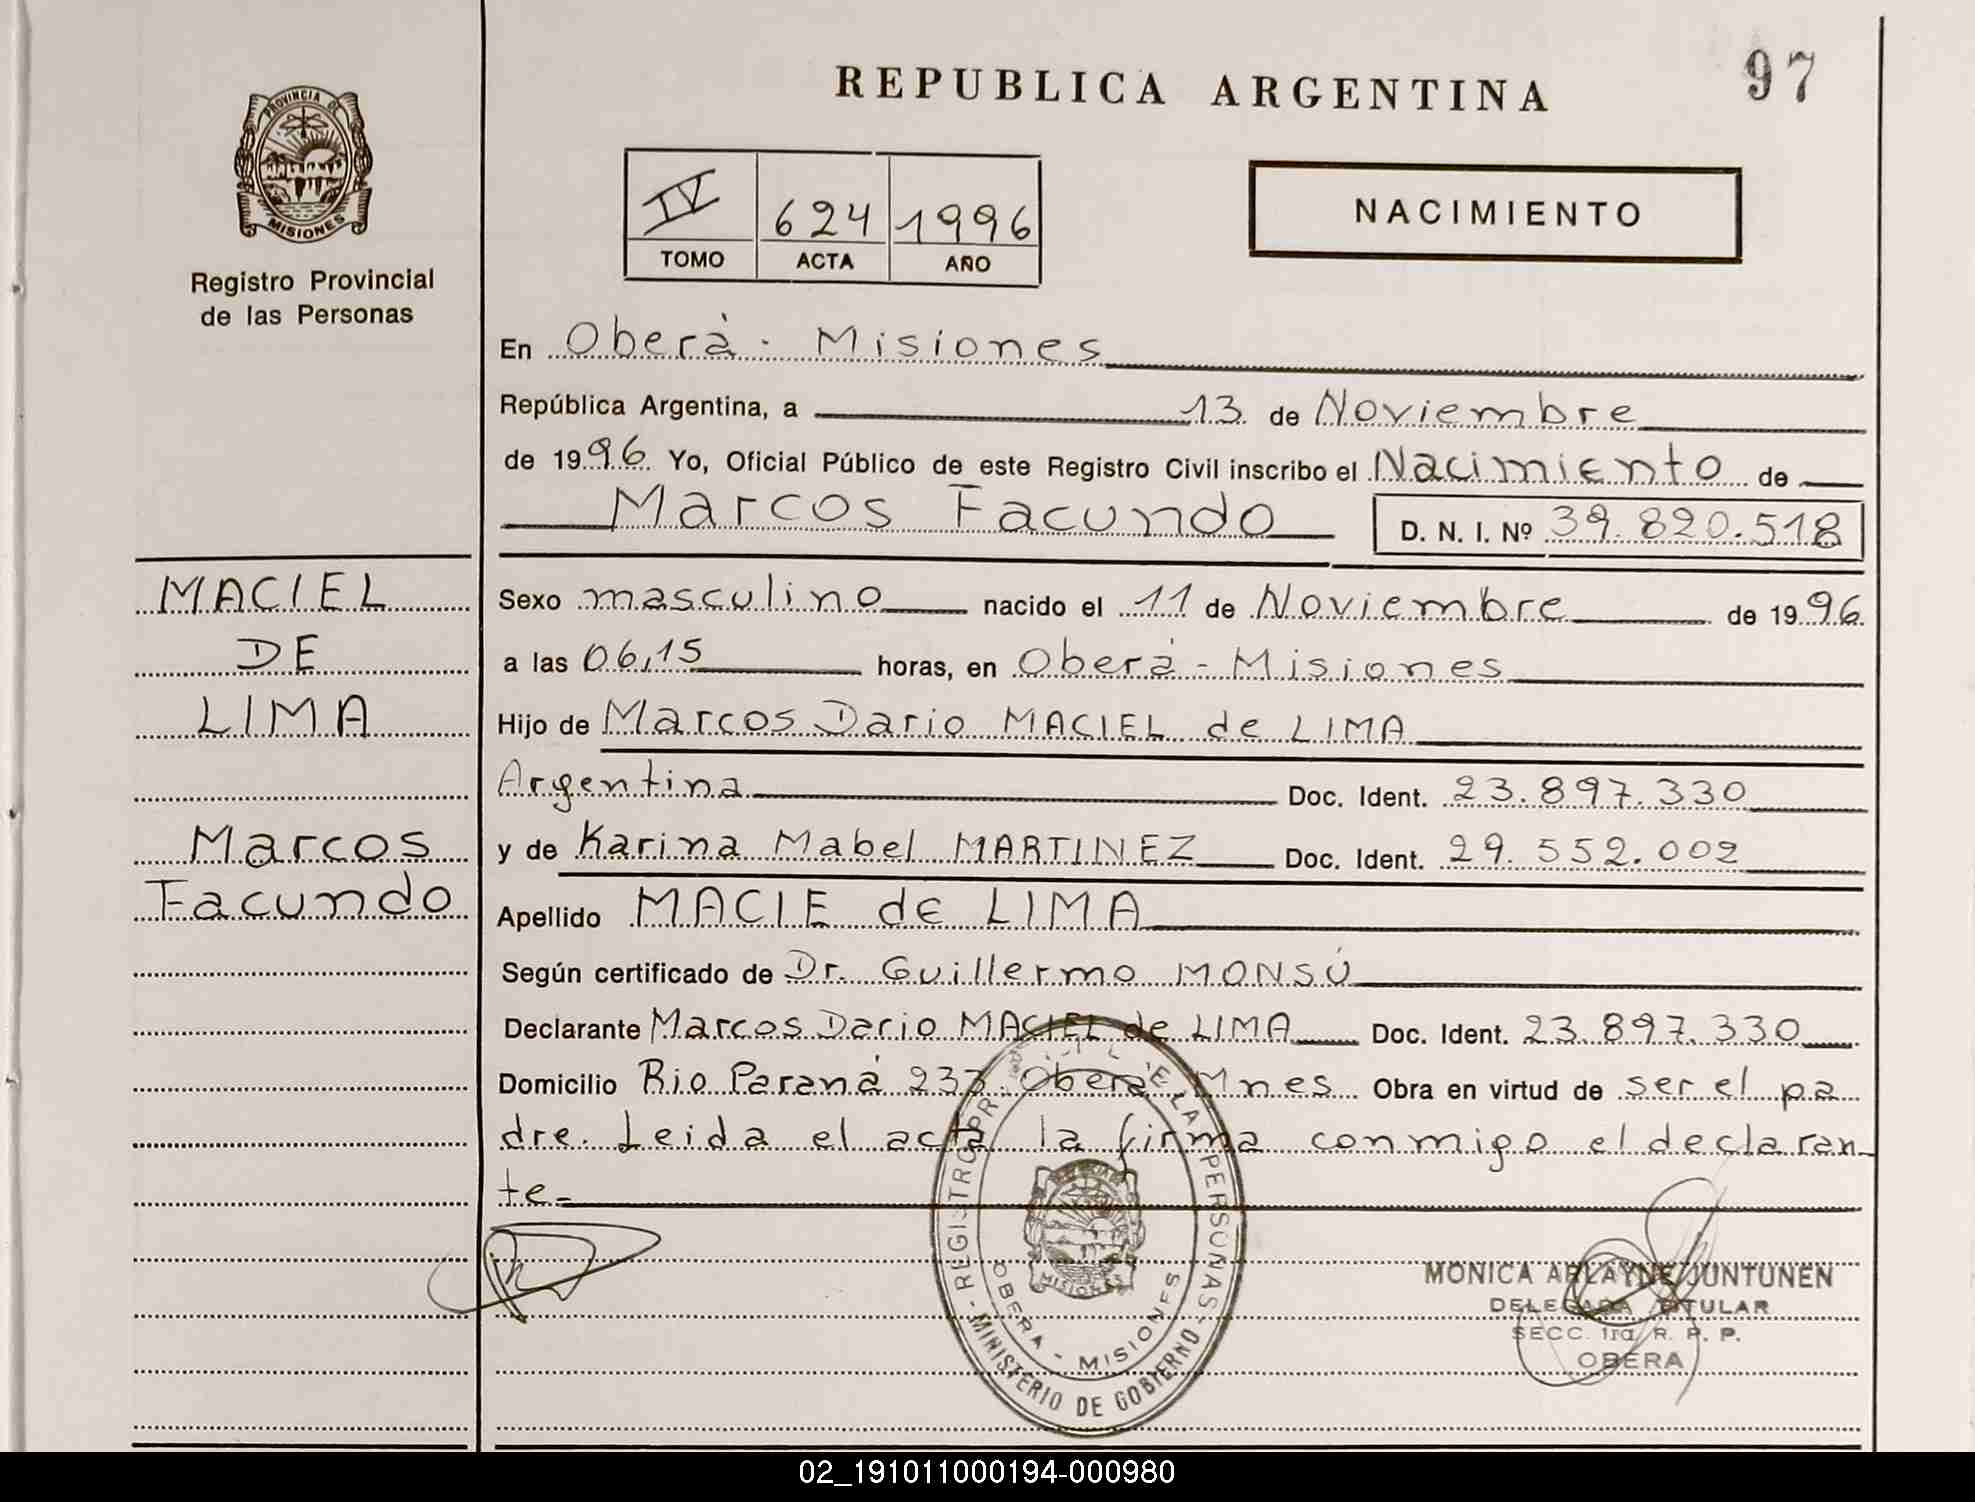 97
REPUBLICA ARGENTINA
PROVINCIA DE
MISIONES
Registro Provincial
de las Personas
IV 624 1996
TOMO ACTA AÑO
NACIMIENTO
En Oberá - Misiones
República Argentina, a 13 de Noviembre
de 1996 Yo, Oficial Público de este Registro Civil inscribo el Nacimiento de
Marcos Facundo D. N. I. Nº 39.820.518
MACIEL
DE
LIMA
Marcos
Facundo
Sexo masculino nacido el 11 de Noviembre de 1996
a las 06,15 horas, en Oberá - Misiones
Hijo de Marcos Dario MACIEL de LIMA
Argentina Doc. Ident. 23.897.330
y de Karina Mabel MARTINEZ Doc. Ident. 29.552.002
Apellido MACIE de LIMA
Según certificado de Dr. Guillermo MONSÚ
Declarante Marcos Dario MACIEL de LIMA Doc. Ident. 23.897.330
Domicilio Rio Paraná 233. Oberá Mnes Obra en virtud de ser el pa
dre. Leida el acta la firma conmigo el declaran-
te-
REGISTRO PR LA PERSONAS
OBERA - MISIONES
MISIONES
MINISTERIO DE GOBIERNO
MONICA ARLAYNE JUNTUNEN
DELEGADA TITULAR
SECC. 1ra. R. P. P.
OBERA
02_191011000194-000980